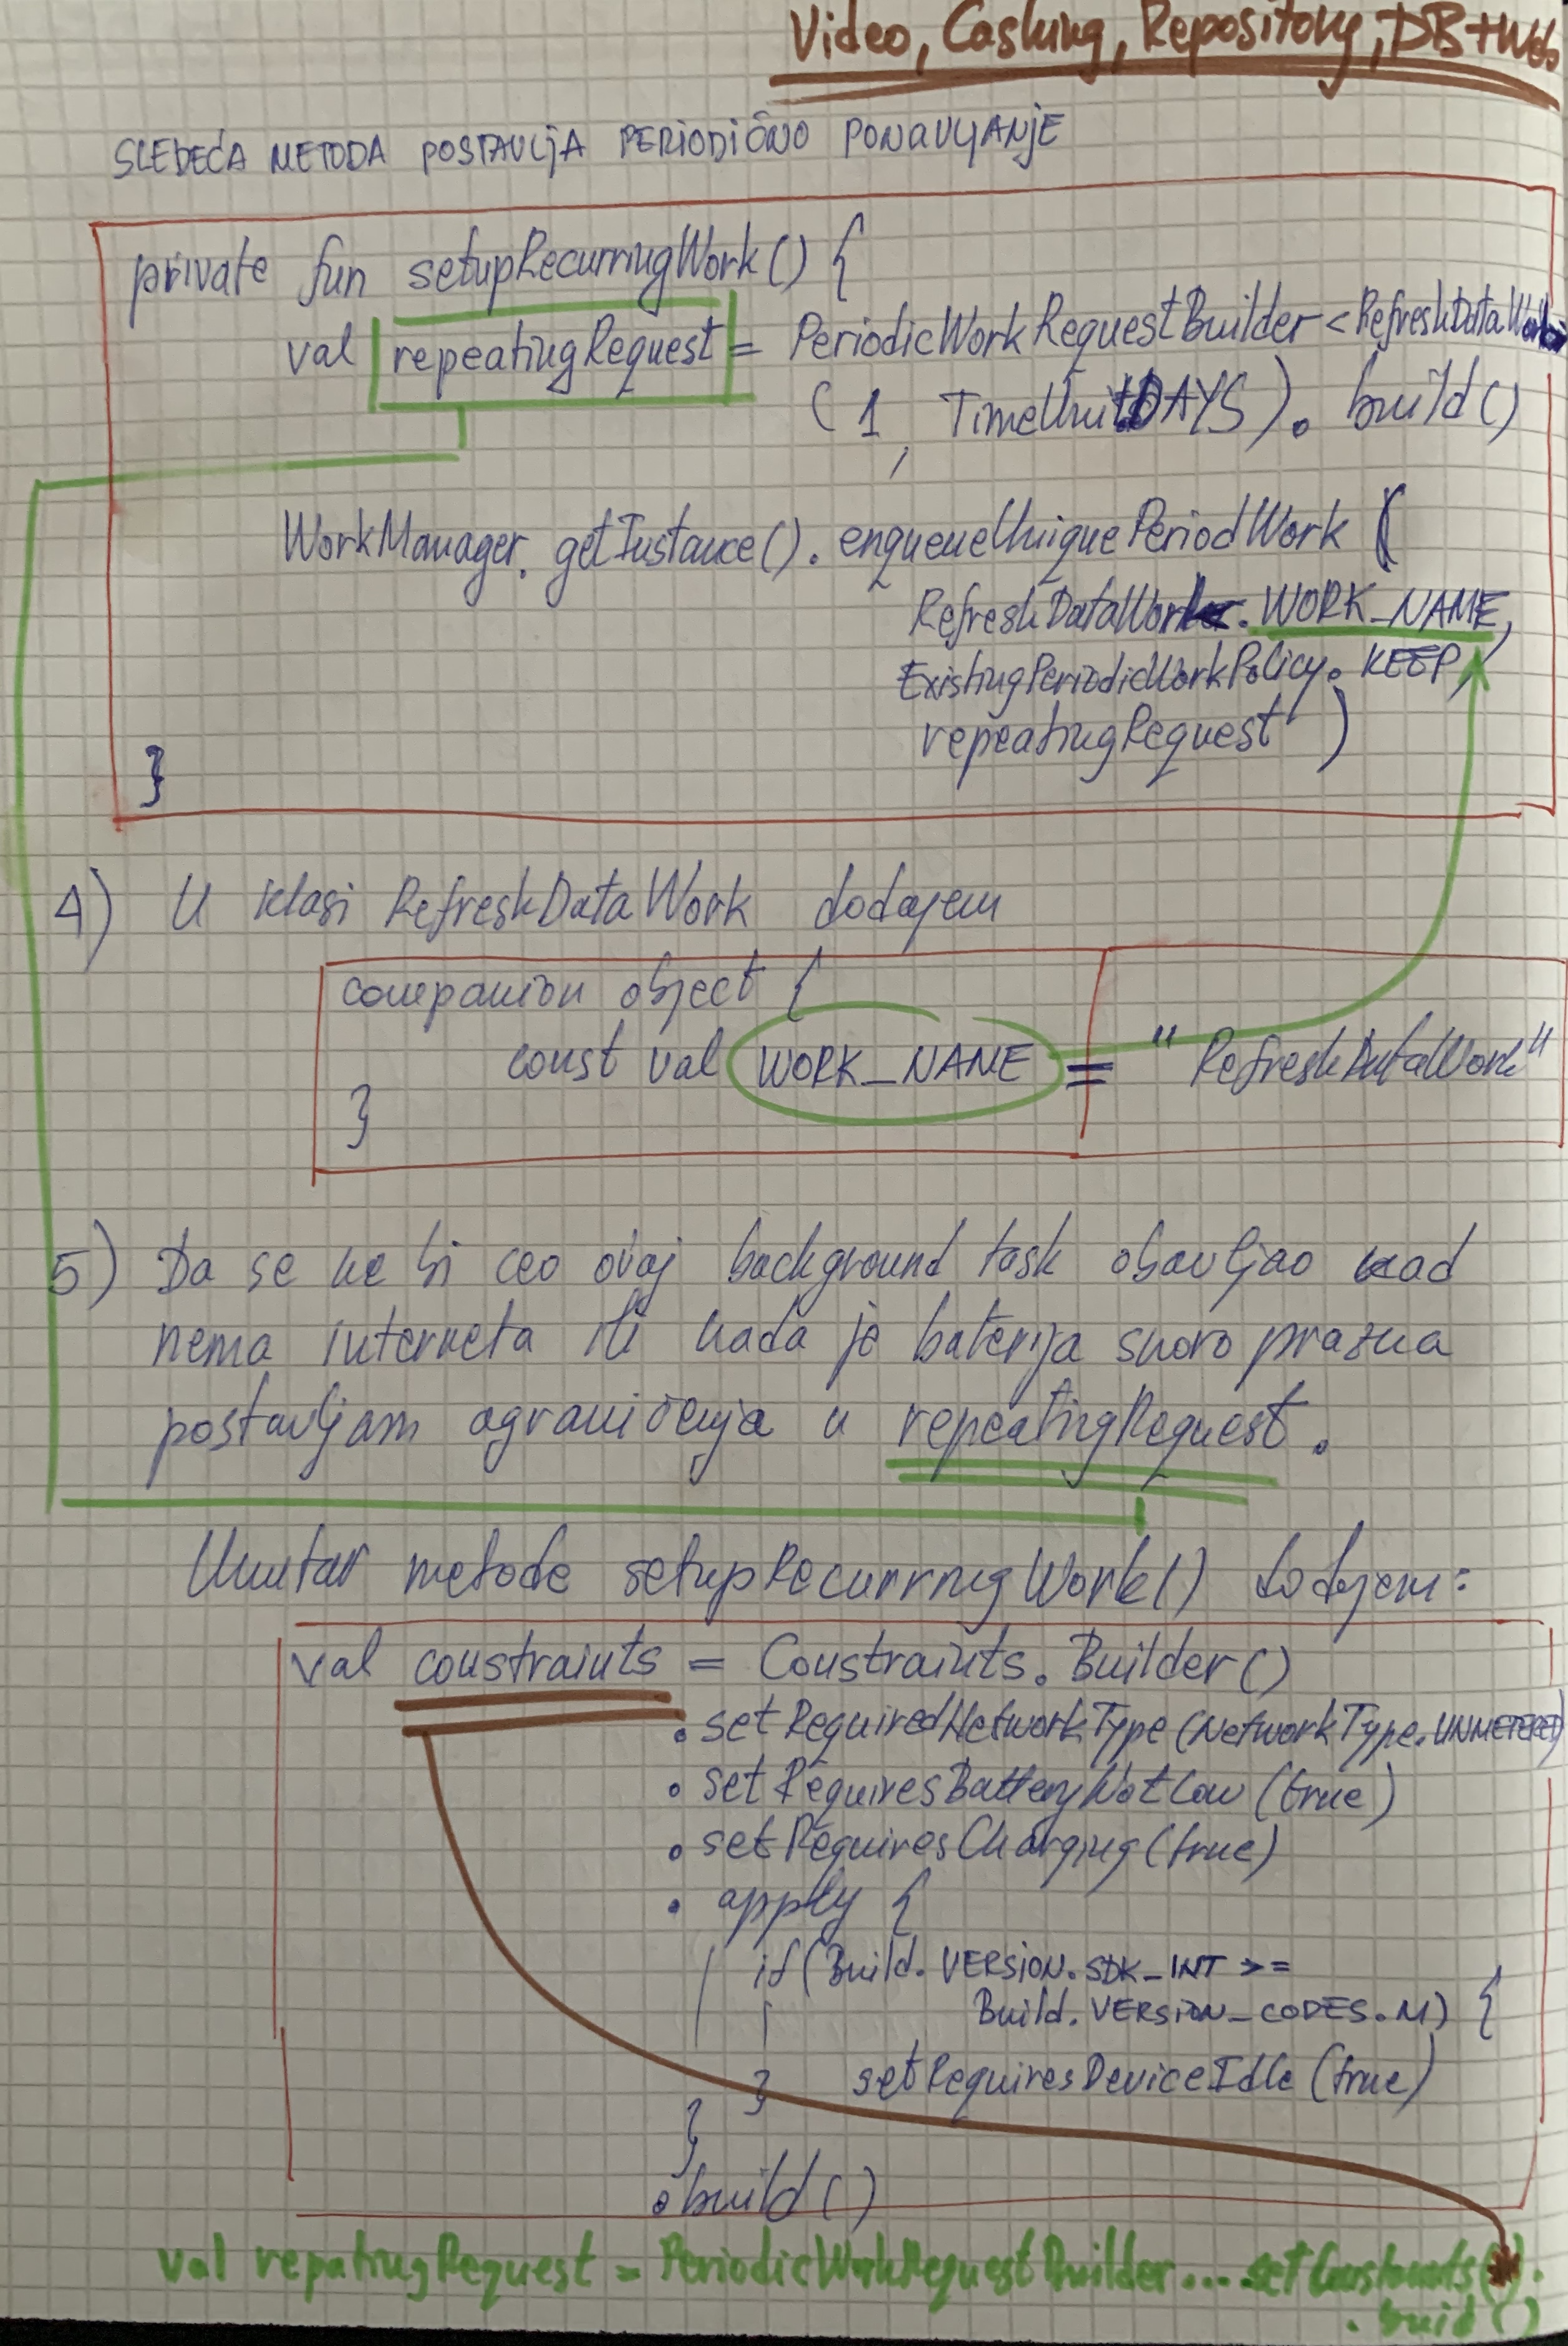 Video, Cashing, Repository, DB+Web
SLEDEĆA METODA POSTAVLJA PERIODIČNO PONAVLJANJE
private fun setupRecurringWork() {
val repeatingRequest = PeriodicWorkRequestBuilder<RefreshDataWork>
(1, TimeUnit.DAYS). build()
WorkManager. getInstance(). enqueueUniquePeriodWork (
RefreshDataWork. WORK_NAME,
ExistingPeriodicWorkPolicy. KEEP,
repeatingRequest )
}
4) U klasi RefreshDataWork dodajem
companion object {
const val WORK_NAME = "RefreshDataWork"
}
5) Da se ne bi ceo ovaj background task obavljao kad
nema interneta ili kada je baterija skoro prazna
postavljam ograničenja u repeatingRequest.
Unutar metode setupRecurrnigWork() dodajem:
val constraints = Constraints. Builder()
. setRequiredNetworkType (NetworkType. UNMETERED)
. setRequiresBatteryNotLow (true)
. setRequiresCharging (true)
. apply {
if (Build. VERSION. SDK_INT >=
Build. VERSION_CODES. M) {
setRequiresDeviceIdle (true)
}
}
. build()
val repatingRequest = PeriodicWorkRequestBuilder....setConstraints().
. buid()